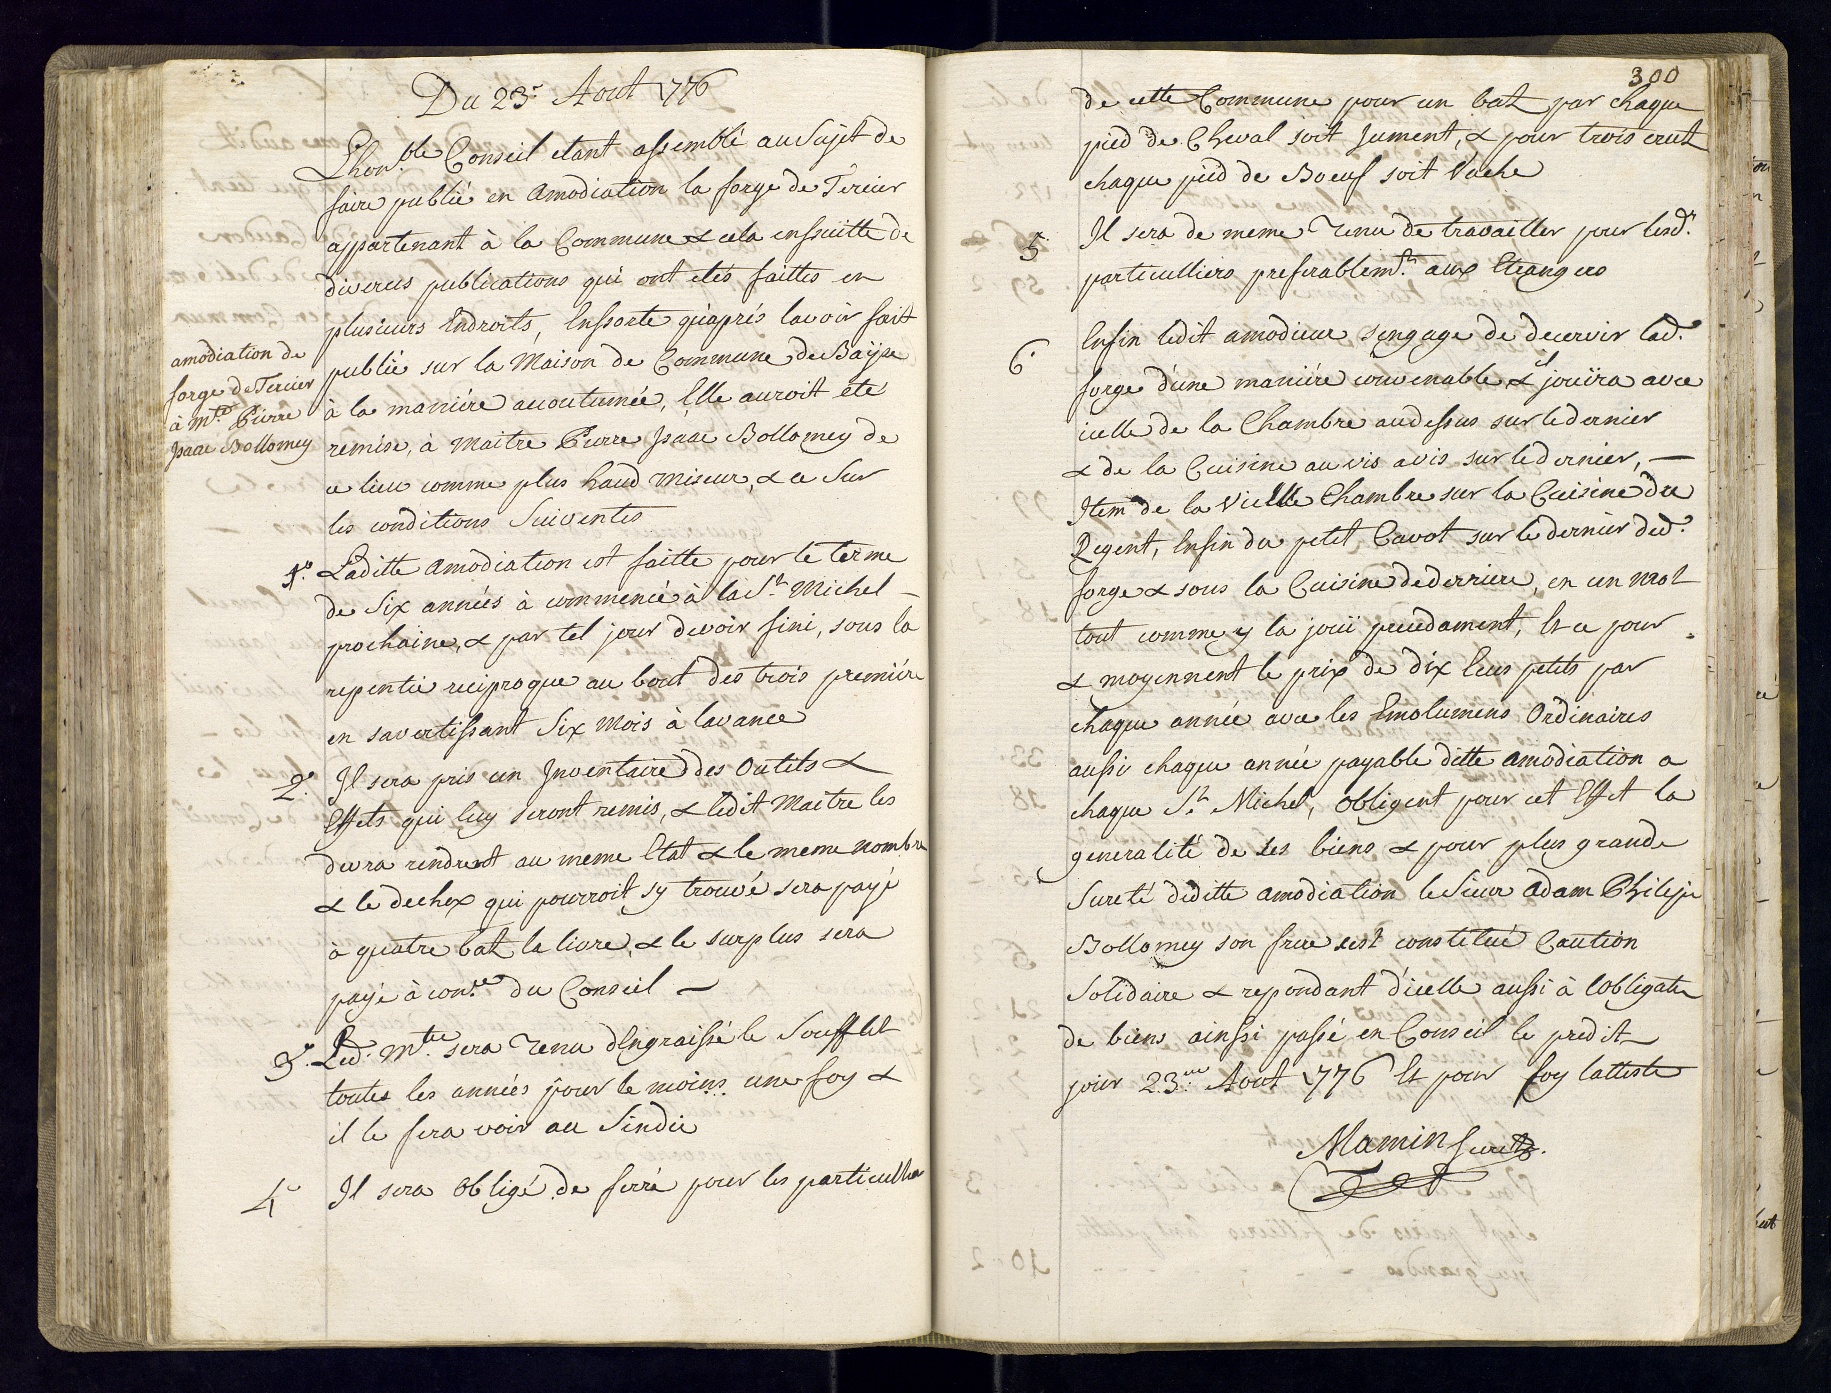 Du 23.e Aout 1776
Lhon.ble Conseil etant assemblé au Sujet de
faire publié en amodiation la forge de Tercier
appartenant à la Commune & cela ensuitte de
diverses publications qui ont etés faittes en
plusieurs Endroits, Enssorte qu'aprés lavoir fait
publié sur la Maison de Commune de Baÿse
à la maniére accoutumée, Elle auroit été
remise, à Maitre Pierre Isaac Bollomey de
ce lieu comme plus haud miseur, & ce Sur
les conditions Suiventes
amodiation de
forge de Tercier
à M.tre Pierre
Isaac Bollomey
1.o Laditte amodiation est faitte pour le terme
de Six années à commencé à la S.t Michel –
prochaine, & par tel jour devoir fini, sous la
repentie reciproque au bout des trois premiére
en savertissant Six mois à lavance
2.e Il sera pris un Inventaire des Outils &
Effets qui luy seront remis, & ledit Maitre les
devra rendre au meme Etat & le meme nombre
& le dechex qui pourroit sy trouvé sera payé
à quatre batz la livre, & le surplus sera
payé à con.ce du Conseil –
3.e Led. M.tre sera Tenu d'Engraissé le Soufflet
toutes les années pour le moins une foy &
il le fera voir au Sindic
4.e Il sera Obligé de ferré pour les particullier
300
de cette Commune pour un batz par chaque
pied de Cheval soit Jument, & pour trois crutz
chaque pied de Boeuf soit Vache
5. Il sera de meme Tenu de travailler pour lesd.ts
particulliers preferablem.t aux Etrangers
6. Enfin ledit amodieur s'engage de decervir lad.e
forge d'une maniére convenable & il jouïra avec
icelle de la Chambre audessus sur le dernier
& de la Cuisine au vis avis sur le dernier, –
Item de la Vielle Chambre sur la Cuisine du
Regent, Enfin du petit Cavot sur le dernier ded.e
forge & sous la Cuisine de derriere, en un mot
tout comme y la jouï precedament, Et ce pour
& moyennent le prix de dix Ecus petits par
chaque année avec les Emolumens Ordinaires
aussi chaque année payable ditte amodiation a
chaque S.t Michel, Obligent pour cet Effet la
generalité de ses biens & pour plus grande
Sureté deditte amodiation le Sieur Adam Philipe
Bollomey son frere sest constitué Caution
Solidaire & repondant d'icelle aussi à lobligat.n
de biens ainssi passé en Conseil le predit
jour 23.me Aout 1776 Et pour foy latteste
Mamin